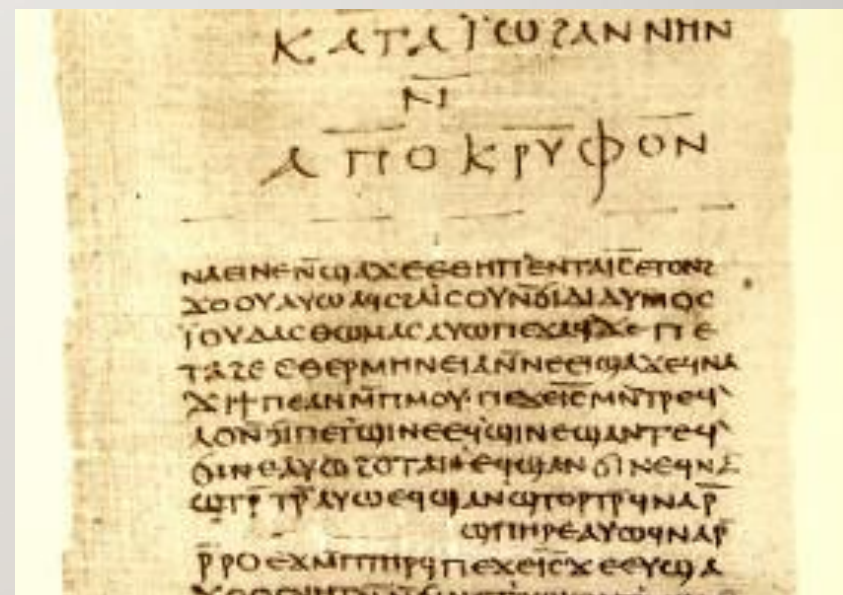 ⲕⲁⲧⲁ ⲓ̈ⲱϩⲁⲛⲛⲏⲛ
ⲛ̄
ⲁⲡⲟⲕⲣⲩⲫⲟⲛ
ⲛⲁⲉⲓⲛⲉⲛ̄ϣⲁϫⲉⲉⲑⲏⲡ'ⲉⲛⲧⲁⲓ̄ⲥ̄ⲉⲧⲟⲛϩ
ϫⲟⲟⲩⲁⲩⲱⲁϥⲥϩⲁⲓⲥⲟⲩⲛ̄ϭⲓⲇⲓⲇⲩⲙⲟⲥ
ⲓ̈ⲟⲩⲇⲁⲥⲑⲱⲙⲁⲥⲁⲩⲱⲡⲉϫⲁϥϫⲉⲡⲉ
ⲧⲁϩⲉⲉⲑⲉⲣⲙⲏⲛⲉⲓⲁⲛ̄ⲛⲉⲉⲓϣⲁϫⲉϥⲛⲁ
ϫⲓϯⲡⲉⲁⲛⲙ̄ⲡⲙⲟⲩ·ⲡⲉϫⲉⲓ̄ⲥ̄ⲙⲛ̄ⲧⲣⲉϥ'
ⲗⲟⲛ̄ϭⲓⲡⲉⲧϣⲓⲛⲉⲉϥϣⲓⲛⲉϣⲁⲛⲧⲉϥ'
ϭⲓⲛⲉⲁⲩⲱϩⲟⲧⲁⲛⲉϥϣⲁⲛϭⲓⲛⲉϥⲛⲁ
ϣⲧⲣ̄ⲧⲣ̄ⲁⲩⲱⲉϥϣⲁⲛϣⲧⲟⲣⲧⲣ̄ϥⲛⲁⲣ̄
ϣⲡⲏⲣⲉⲁⲩⲱϥⲛⲁⲣ̄
ⲣ̄ⲣⲟⲉϫⲙ̄ⲡⲧⲏⲣϥⲡⲉϫⲉⲓ̄ⲥ̄ϫⲉⲉⲩϣⲁ